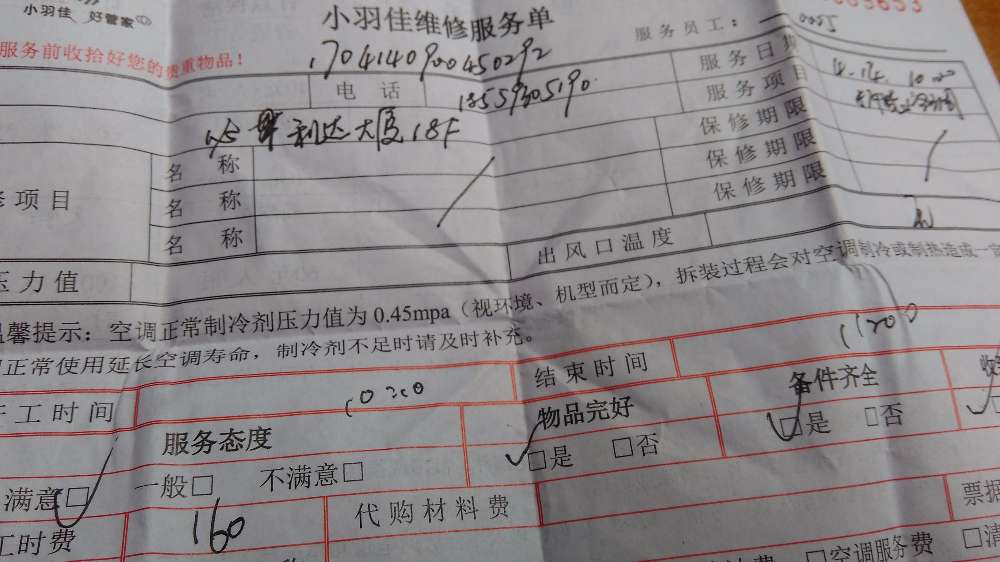 小羽佳 好管家
小羽佳维修服务单
服务员工: 0005
服务前收拾好您的贵重物品!
1704140900450292
服务日期 4.14. 10
电话 18559305190
服务项目
利达大厦18F
名称 保修期限
修项目 名称 保修期限
名称 保修期限
压力值 出风口温度
温馨提示: 空调正常制冷剂压力值为0.45mpa(视环境、机型而定), 拆装过程会对空调制冷或制热造成一
正常使用延长空调寿命, 制冷剂不足时请及时补充。
开工时间 10:20 结束时间 11:20
服务态度 物品完好 备件齐全
满意□ 一般□ 不满意□ □是 □否 □是 □否
工时费 160 代购材料费 票据
□空调服务费 □清